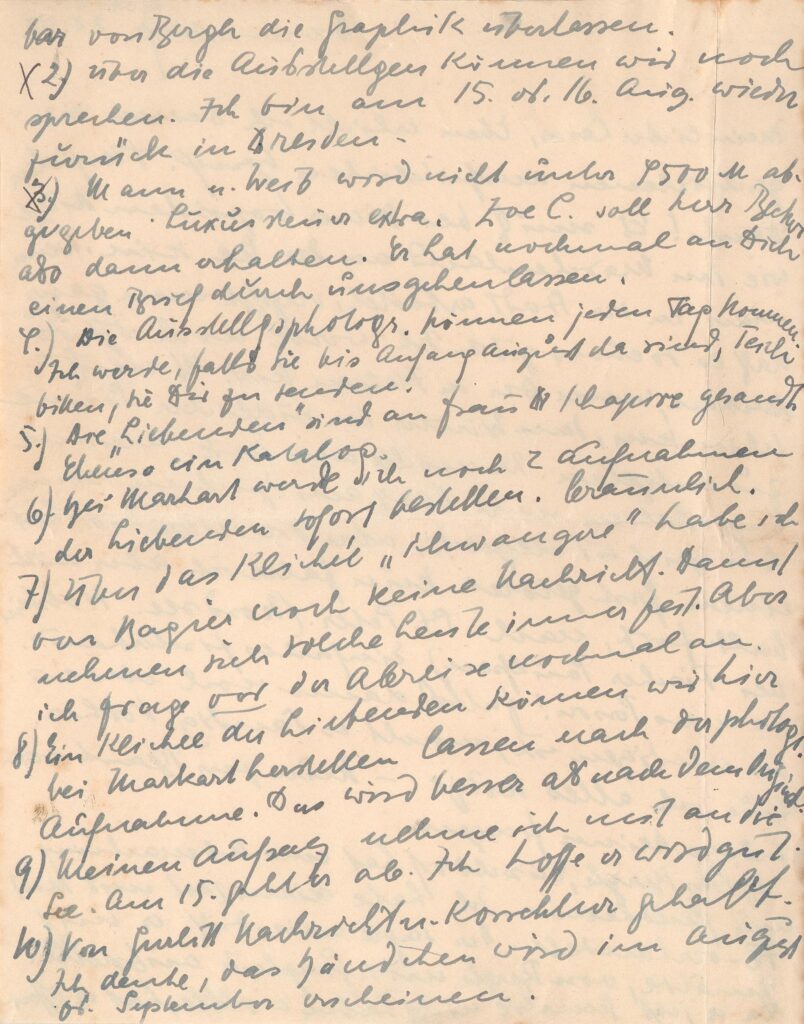 bar von Bergh die Graphik überlassen.
2.) Über die Ausstellgen können wir noch
sprechen. Ich bin am 15. od. 16. Aug. wieder
zurück in Dresden.
3.) Mann u. Weib wird nicht unter 9500 M ab-
gegeben. Luxussteuer extra. Zoe C. soll Herr
also dann erhalten. Er hat nochmal an Dich
einen Brief durch uns gehen lassen.
4.) Die Ausstellgsphotogr. können jeden Tag kommen.
Ich werde, falls sie bis Anfang August da sind, Tesch
bitten, sie Dir zu senden.
5.) Die „Liebenden" sind an Frau Schapire gesandt
Ebenso ein Katalog.
6.) Bei Markart werde ich noch 2 Aufnahmen
der Liebenden sofort bestellen. bräunlich.
7) Über das Klichée „Schwangere" habe ich
von Bagier noch keine Nachricht. Damit
nehmen sich solche Leute immer fest. Aber
ich frage vor der Abreise nochmal an.
8) Ein Klichee der Liebenden können wir hier
bei Markart herstellen lassen nach der photogr.
Aufnahme. Das wird besser als nach dem Original.
9) Meinen Aufsatz nehme ich mit an die
See. Am 15. geht er ab. Ich hoffe er wird gut.
10) Von Gurlitt Nachricht u. Korrektur gehabt.
Ich denke, das Bändchen wird im August
od. September erscheinen.